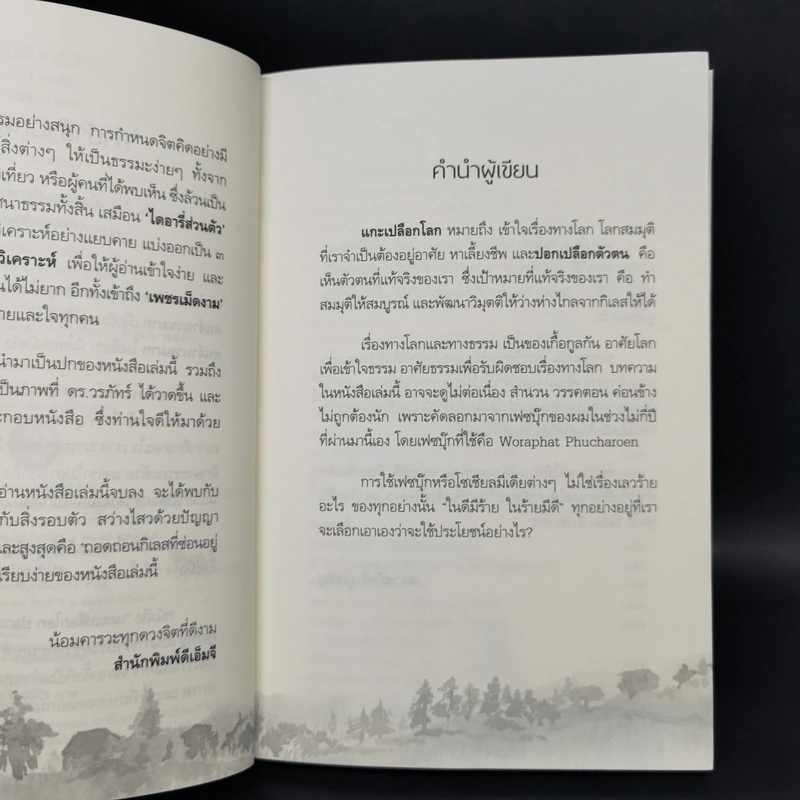 รมอย่างสนุก การกำหนดจิตคิดอย่างมี
สิ่งต่างๆ ให้เป็นธรรมะง่ายๆ ทั้งจาก
เที่ยว หรือผู้คนที่ได้พบเห็น ซึ่งล้วนเป็น
สนาธรรมทั้งสิ้น เสมือน ‘ไดอารี่ส่วนตัว’
วิเคราะห์อย่างแยบคาย แบ่งออกเป็น ๓
วิเคราะห์ เพื่อให้ผู้อ่านเข้าใจง่าย และ
นได้ไม่ยาก อีกทั้งเข้าถึง ‘เพชรเม็ดงาม’
ายและใจทุกคน
นำมาเป็นปกของหนังสือเล่มนี้ รวมถึง
ป็นภาพที่ ดร.วรภัทร์ ได้วาดขึ้น และ
ะกอบหนังสือ ซึ่งท่านใจดีให้มาด้วย
อ่านหนังสือเล่มนี้จบลง จะได้พบกับ
กับสิ่งรอบตัว สว่างไสวด้วยปัญญา
และสูงสุดคือ ‘ถอดถอนกิเลสที่ซ่อนอยู่
เรียบง่ายของหนังสือเล่มนี้
น้อมคารวะทุกดวงจิตที่ดีงาม
สำนักพิมพ์ดีเอ็มจี
คำนำผู้เขียน
แกะเปลือกโลก หมายถึง เข้าใจเรื่องทางโลก โลกสมมุติ
ที่เราจำเป็นต้องอยู่อาศัย หาเลี้ยงชีพ และปอกเปลือกตัวตน คือ
เห็นตัวตนที่แท้จริงของเรา ซึ่งเป้าหมายที่แท้จริงของเรา คือ ทำ
สมมุติให้สมบูรณ์ และพัฒนาวิมุตติให้ว่างห่างไกลจากกิเลสให้ได้
เรื่องทางโลกและทางธรรม เป็นของเกื้อกูลกัน อาศัยโลก
เพื่อเข้าใจธรรม อาศัยธรรมเพื่อรับผิดชอบเรื่องทางโลก บทความ
ในหนังสือเล่มนี้ อาจจะดูไม่ต่อเนื่อง สำนวน วรรคตอน ค่อนข้าง
ไม่ถูกต้องนัก เพราะคัดลอกมาจากเฟซบุ๊กของผมในช่วงไม่กี่ปี
ที่ผ่านมานี้เอง โดยเฟซบุ๊กที่ใช้คือ Woraphat Phucharoen
การใช้เฟซบุ๊กหรือโซเชียลมีเดียต่างๆ ไม่ใช่เรื่องเลวร้าย
อะไร ของทุกอย่างนั้น “ในดีมีร้าย ในร้ายมีดี” ทุกอย่างอยู่ที่เรา
จะเลือกเอาเองว่าจะใช้ประโยชน์อย่างไร?